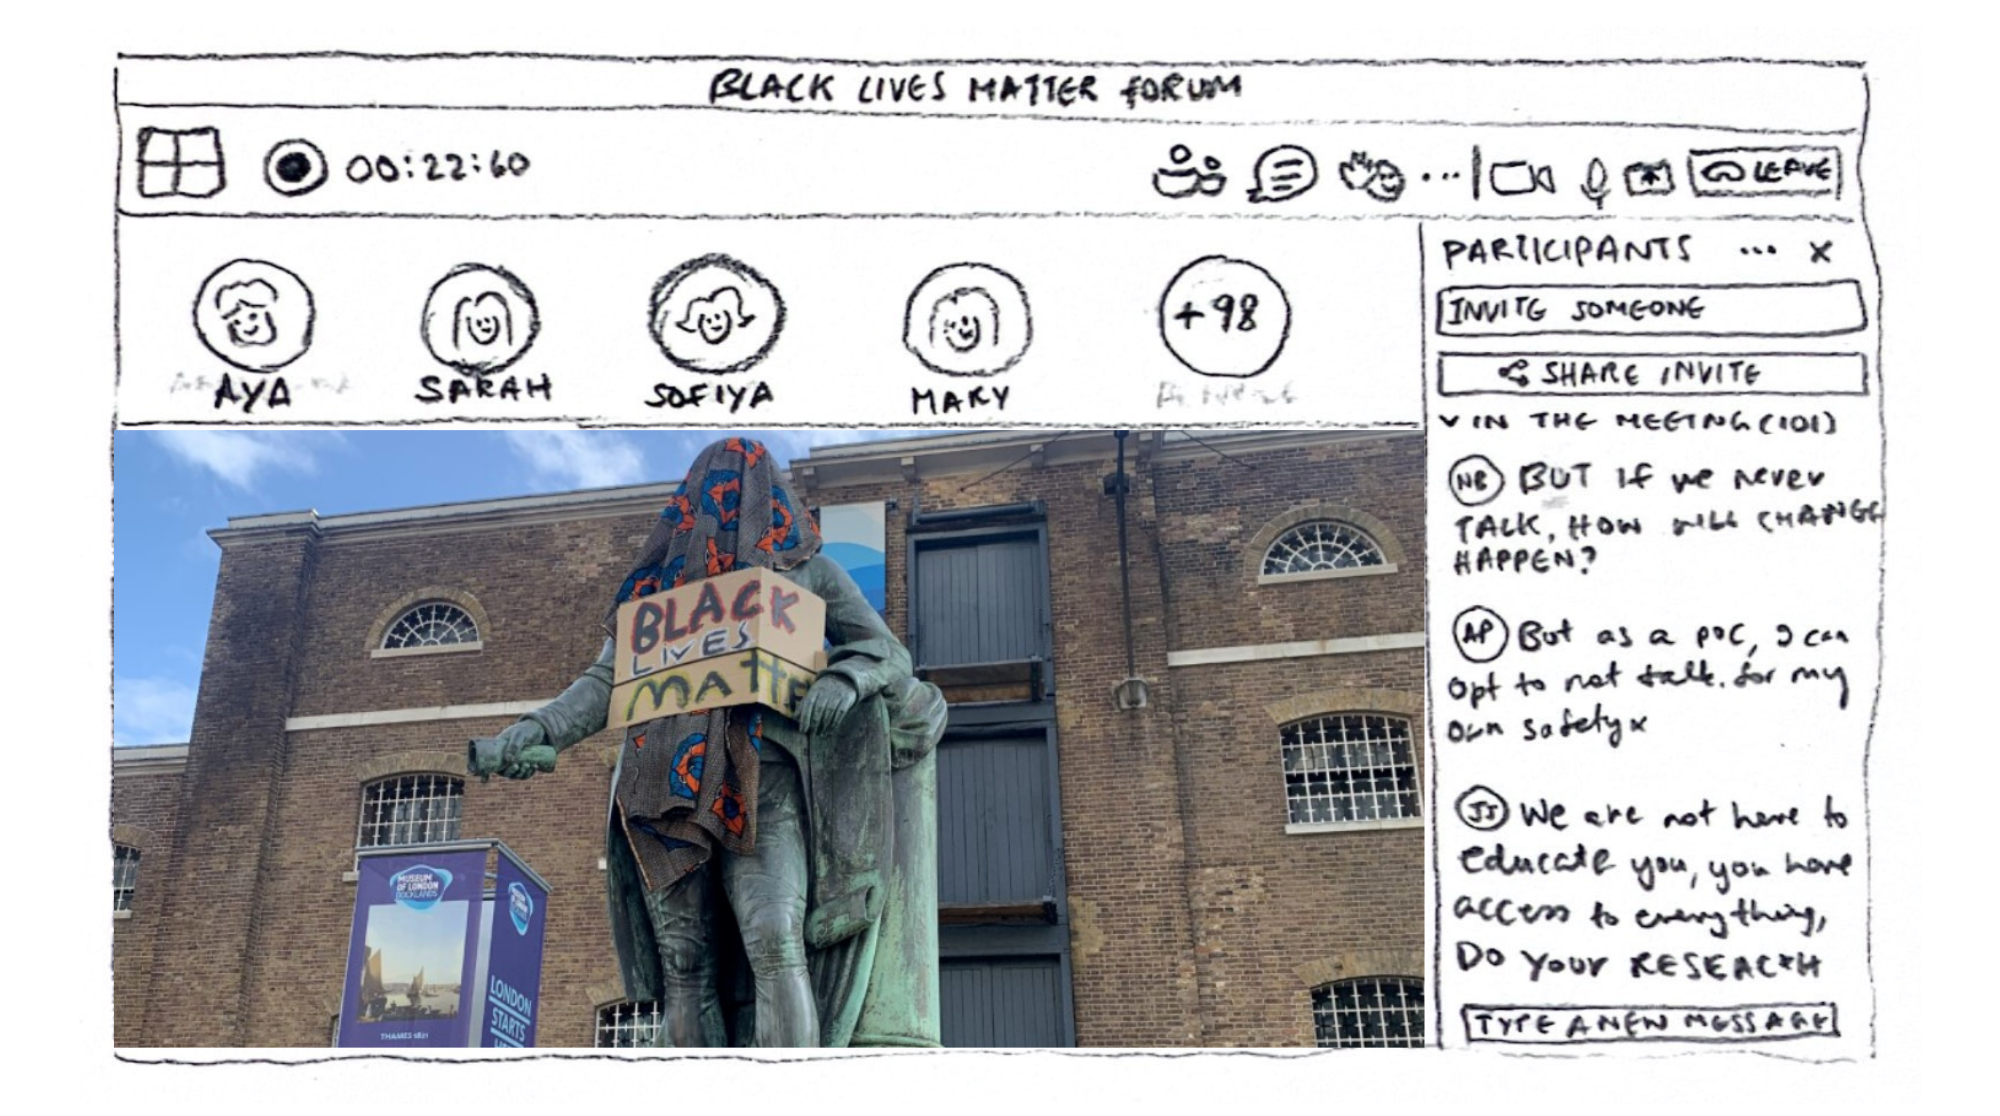 BLACK LIVES MATTER FORUM
00:22:60
LEAVE
AYA
SARAH
SOFIYA
MARY
+98
PARTICIPANTS ... X
INVITE SOMEONE
SHARE INVITE
IN THE MEETING (101)
NB BUT If we never
TALK, HOW WILL CHANGE
HAPPEN?
AP But as a POC, I can
opt to not talk. for my
own safety x
JJ We are not here to
educate you, you have
access to everything,
DO YOUR RESEACRH
TYPE A NEW MESSAGE
BLACK
LIVES
MATTE
MUSEUM
OF LONDON
DOCKLANDS
THAMES 1821
LONDON
STARTS